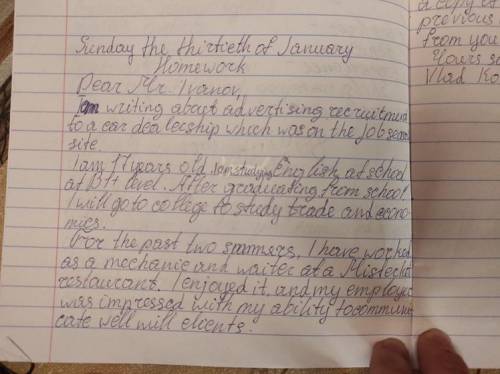 Sunday the thirtieth of January
Homework
Dear Mr. Ivanov,
I am writing about advertising recruitment
to a car dealership which was on the job sear
site.
I am 17 years old. I am studying English at school
at B1+ level. After graduating from school,
I will go to college to study trade and econo-
mics.
For the past two summers, I have worked
as a mechanic and waiter at a Mister
restaurant. I enjoyed it, and my employe
was impressed with my ability to commun
cate well will clients.
a copy of
previous
from you
Yours s
Vlad Ko